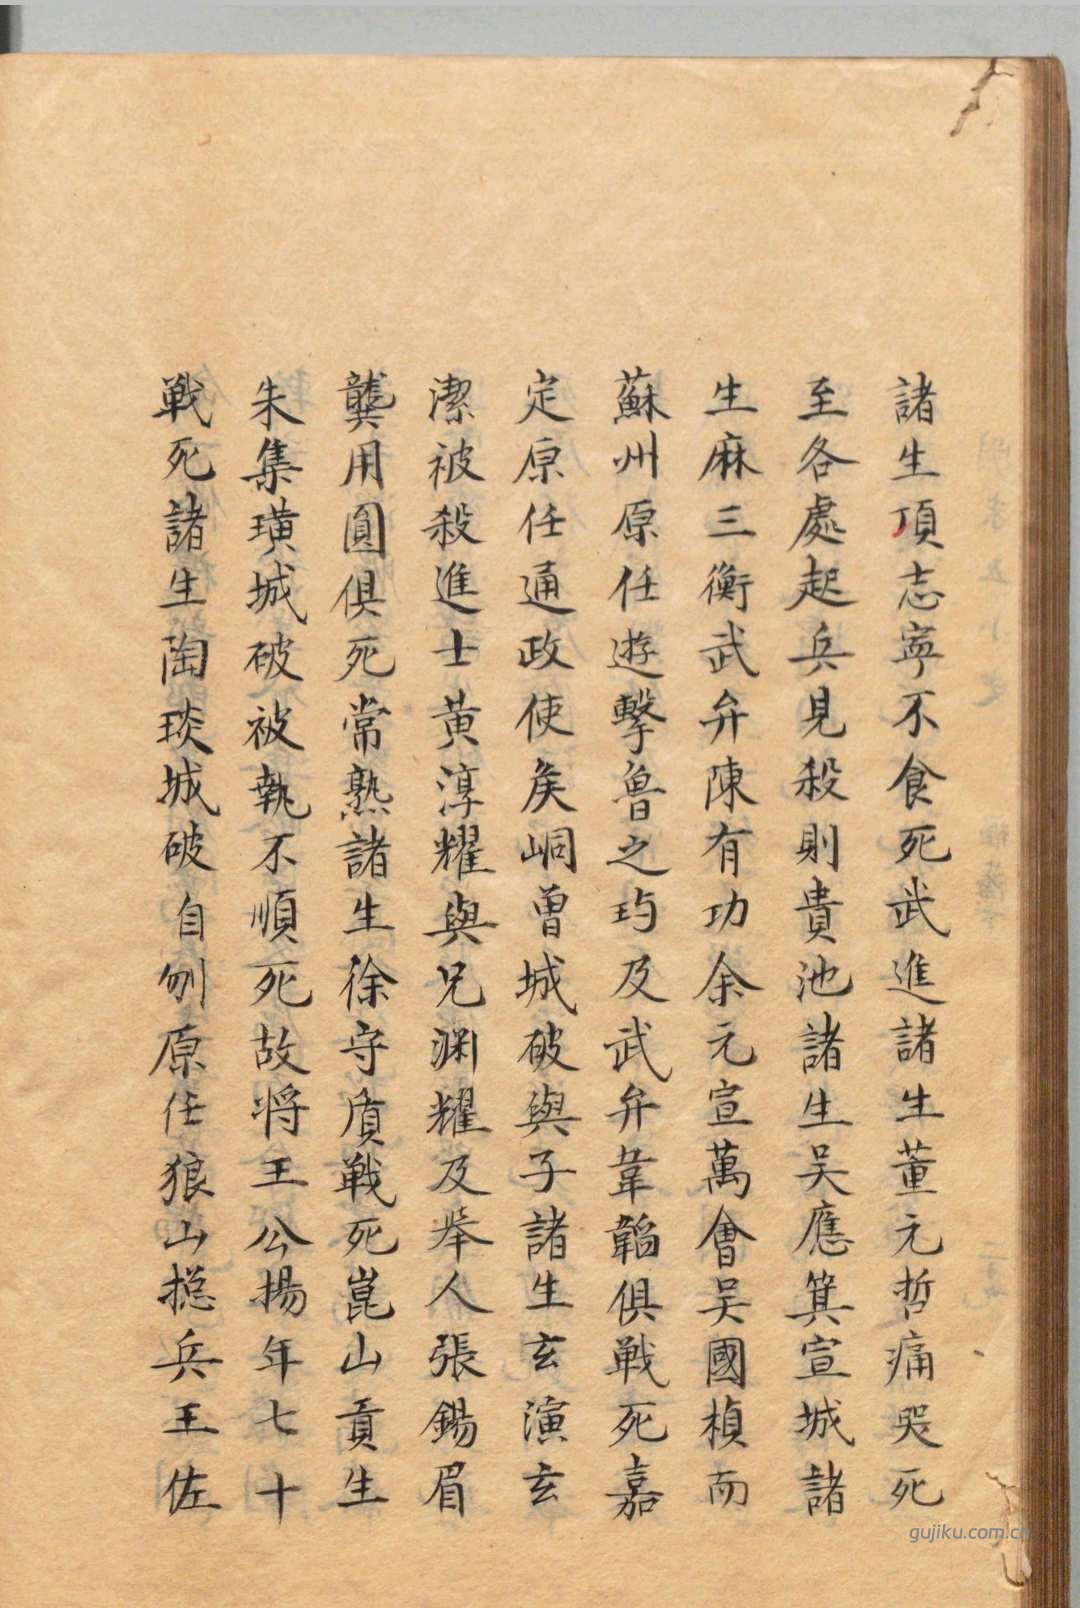 諸生項志寧不食死武進諸生董元哲痛哭死
至各處起兵見殺則貴池諸生吴應箕宣城諸
生麻三衡武弁陳有功余元宣萬會吴國楨而
蘇州原任遊擊魯之玙及武弁韋韜俱戦死嘉
定原任通政使矦峒曽城破與子諸生玄演玄
潔被殺進士黄淳耀與兄渊耀及舉人張錫眉
龔用圓俱死常熟諸生徐守質戦死崑山貢生
朱集璜城破被執不順死故将王公揚年七十
戦死諸生陶琰城破自刎原任狼山揔兵王佐
gujiku.com.cn